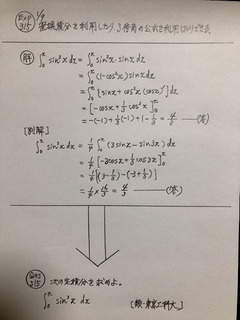 Exp 315 1/9 置換積分を利用したり、3倍角の公式を利用したりできる
(解) ∫₀^π sin³x dx = ∫₀^π sin²x·sinx dx
= ∫₀^π (1-cos²x) sinx dx
= ∫₀^π {sinx + cos²x(cosx)'} dx
= [-cosx + 1/3 cos³x]₀^π
= -(-1) + 1/3(-1) + 1 - 1/3 = 4/3 ——(答)
[別解]
∫₀^π sin³x dx = 1/4 ∫₀^π (3sinx - sin3x) dx
= 1/4 [-3cosx + 1/3 cos3x]₀^π
= 1/4 {(3 - 1/3) - (-3 + 1/3)}
= 1/4 × 16/3 = 4/3 ——(答)
Ques 315 次の定積分を求めよ。
∫₀^π sin³x dx [ 東京工科大 ]